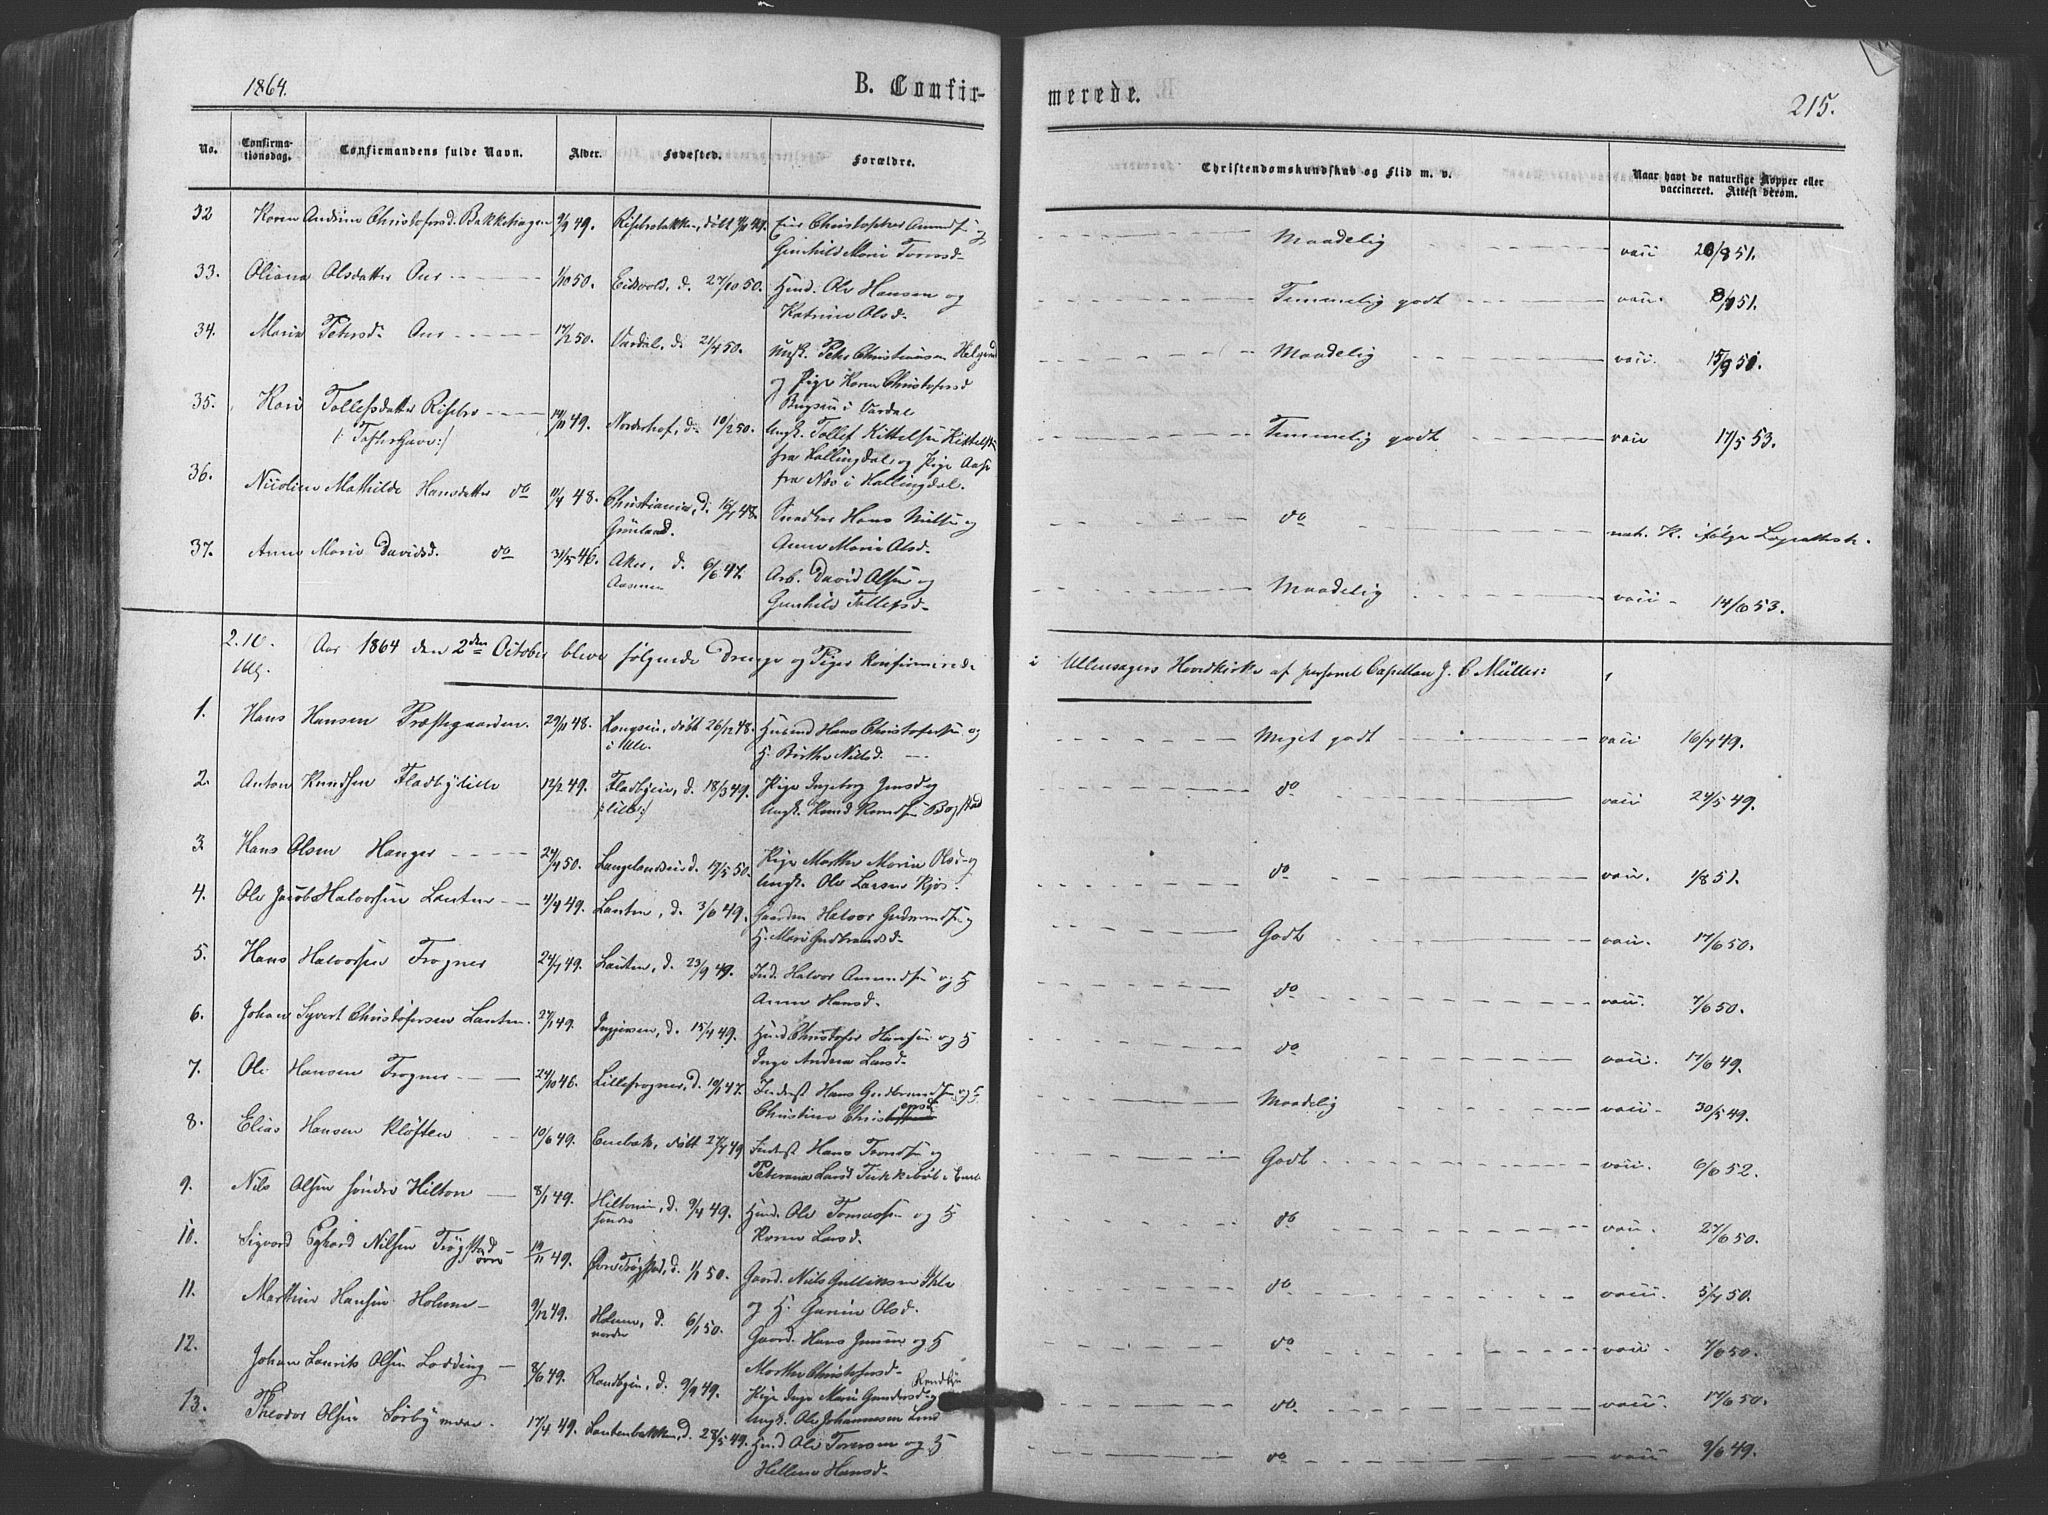 1864.
B. Confir-
merede.
215.
No.
Confirma-
tionsdag.
Confirmandens fulde Navn.
Alder.
Fødested.
Forældre.
Christendomskundskab og Flid m. v.
Naar havt de naturlige Kopper eller
vaccineret. Attest derom.
32 Karen Andrine Christofersd. Bakkehagen 9/9 49. Risebrobakken, døbt 49. Christopher Amundsen og
Gunhild Marie Tomsd. Maadelig vacc 20/8 51.
33. Oliana Olsdatter Aur 1/10 50. Eidsvold, d. 27/10 50. Husd. Ole Hansen og
Katrine Olsd. Temmelig godt vacc. 51.
34. Maria Petersd. Aur 17/2 50. Vardal, d. 21/4 50. Ungk. Peter Christiansen
og Pige Karen Christofersd
i Vardal Maadelig vacc. 15/9 50.
35. Kari Tollefsdatter Risebro 14/11 49. Norderhof, d. 10/2 50. Ungk. Tollef Kittelsen
(: :) fra Hallingdal, og Pige Aase
fra Næs i Hallingdal. Temmelig godt vacc 17/5 53.
36. Nicoline Mathilde Hansdatter do 11/4 48. Christiania, d. 48. Snedker Hans Nielsen og
Grønland. Anne Marie Olsd. do nat. K. ifølge Lægeattest.
37. Anne Marie Davidsd. do 31/5 46. Aker, d. 6/6 47. Arb. David Olsen og
Gunhild Tollefsd. Maadelig vacc 14/6 53.
2.10. Aar 1864 den 2den October bleve følgende Drenge og Piger konfirmerede
i Ullensagers Hovedkirke af personel Capellan J. C. Müller:
Ull.
1. Hans Hansen Præstegaarden. 29/11 48. Kongsein, døbt 26/12 48. Husmd Hans Christofersen og
i Ull. H. Berthe Nilsd. Meget godt vacc 16/7 49.
2. Anton Knudsen Fladbylille 12/2 49. Fladbyeie, d. 18/3 49. Pige Ingeborg Jensd og
:lille:) Ungk. Knud Knudsen Bogstad do vacc 24/5 49.
3. Hans Olsen Hanger 24/4 50. Langelandseie d. 19/5 50. Pige Marthe Maria Olsd og
Ungk. Ole Larsen Kjos. do vacc. 1/8 51.
4. Ole Jacob Halvorsen Lauten 4/4 49. Lauten, d. 3/6 49. Gaardm. Halvor Gudmundsen og
H. Mari Gudbrandsd. Godt vacc. 17/6 50.
5. Hans Halvorsen Trogner 24/7 49. Lauten, d. 23/9 49. Ind. Halvor Amundsen og H
Anne Hansd. do vacc. 7/6 50.
6. Johan Syvert Christofersen Lauten. 27/1 49. d. 15/4 49. Husd Christofer Hansen og H
Inge Andrea Larsd. do vacc. 17/6 49.
7. Ole Hansen Trogner 24/10 46. Lilletrogner, d. 10/1 47. Inderst Hans Gulbrandsen og H.
Christine Maadelig vacc. 30/5 49.
8. Elias Hansen Kløften 10/6 49. Enebak, døbt 49 Inderst Hans Trondsen og
Petronna Larsd i Eneb. Godt vacc. 6/6 52.
9. Nils Olsen søndre Hilton 8/1 49. Hiltonie, d. 9/4 49. Husd. Ole Tomassen og H
søndre Karen Larsd. do vacc. 27/6 50.
10. Sigvard Nilsen Trøgstad 19/11 49. ØvreTrøgstad, d. 1/1 50. Gaard. Nils Gulliksen
øvre og H. Gurine Olsd. do vacc. 5/7 50.
11. Marthin Hansen Holum 9/12 49. Holum, d. 6/1 50. Gaard. Hans Jensen og H
nordre Marthe Christofersd. do vacc. 7/6 50.
12. Johan Laurits Olsen Lodding 8/6 49. Randbyeie, d. 9/9 49. Pige Inge Marie Gundersd og
Ungk. Ole Johannesen do vacc. 17/6 50.
13. Theodor Olsen Sørby 17/4 49. Lautenbakken, d. 28/5 49. Husd Ole og H
Hellene Hansd. do vacc 9/6 49.